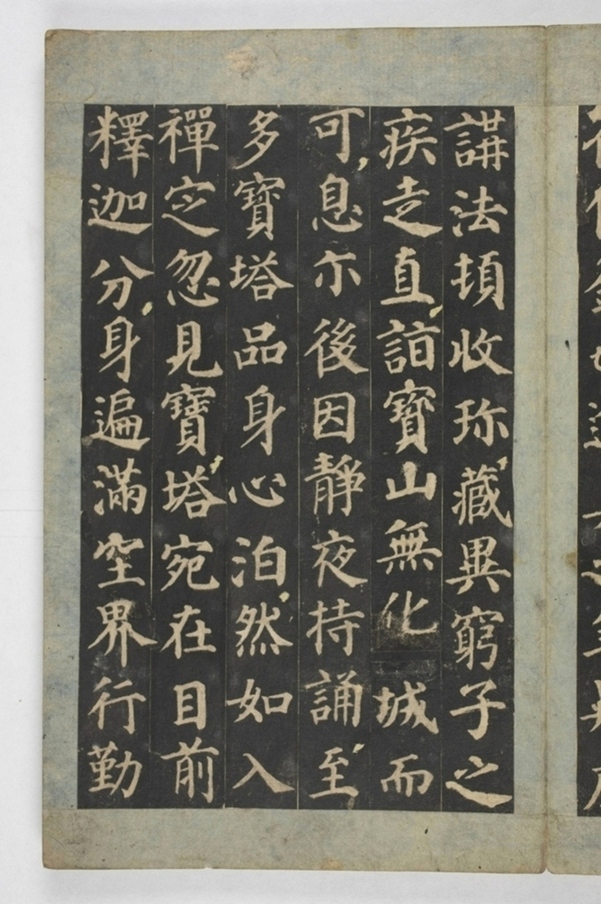 講法頓收珎藏異窮子之
疾走直詣寶山無化城而
可息尒後因靜夜持誦至
多寶塔品身心泊然如入
禪定忽見寶塔宛在目前
釋迦分身遍滿空界行勤